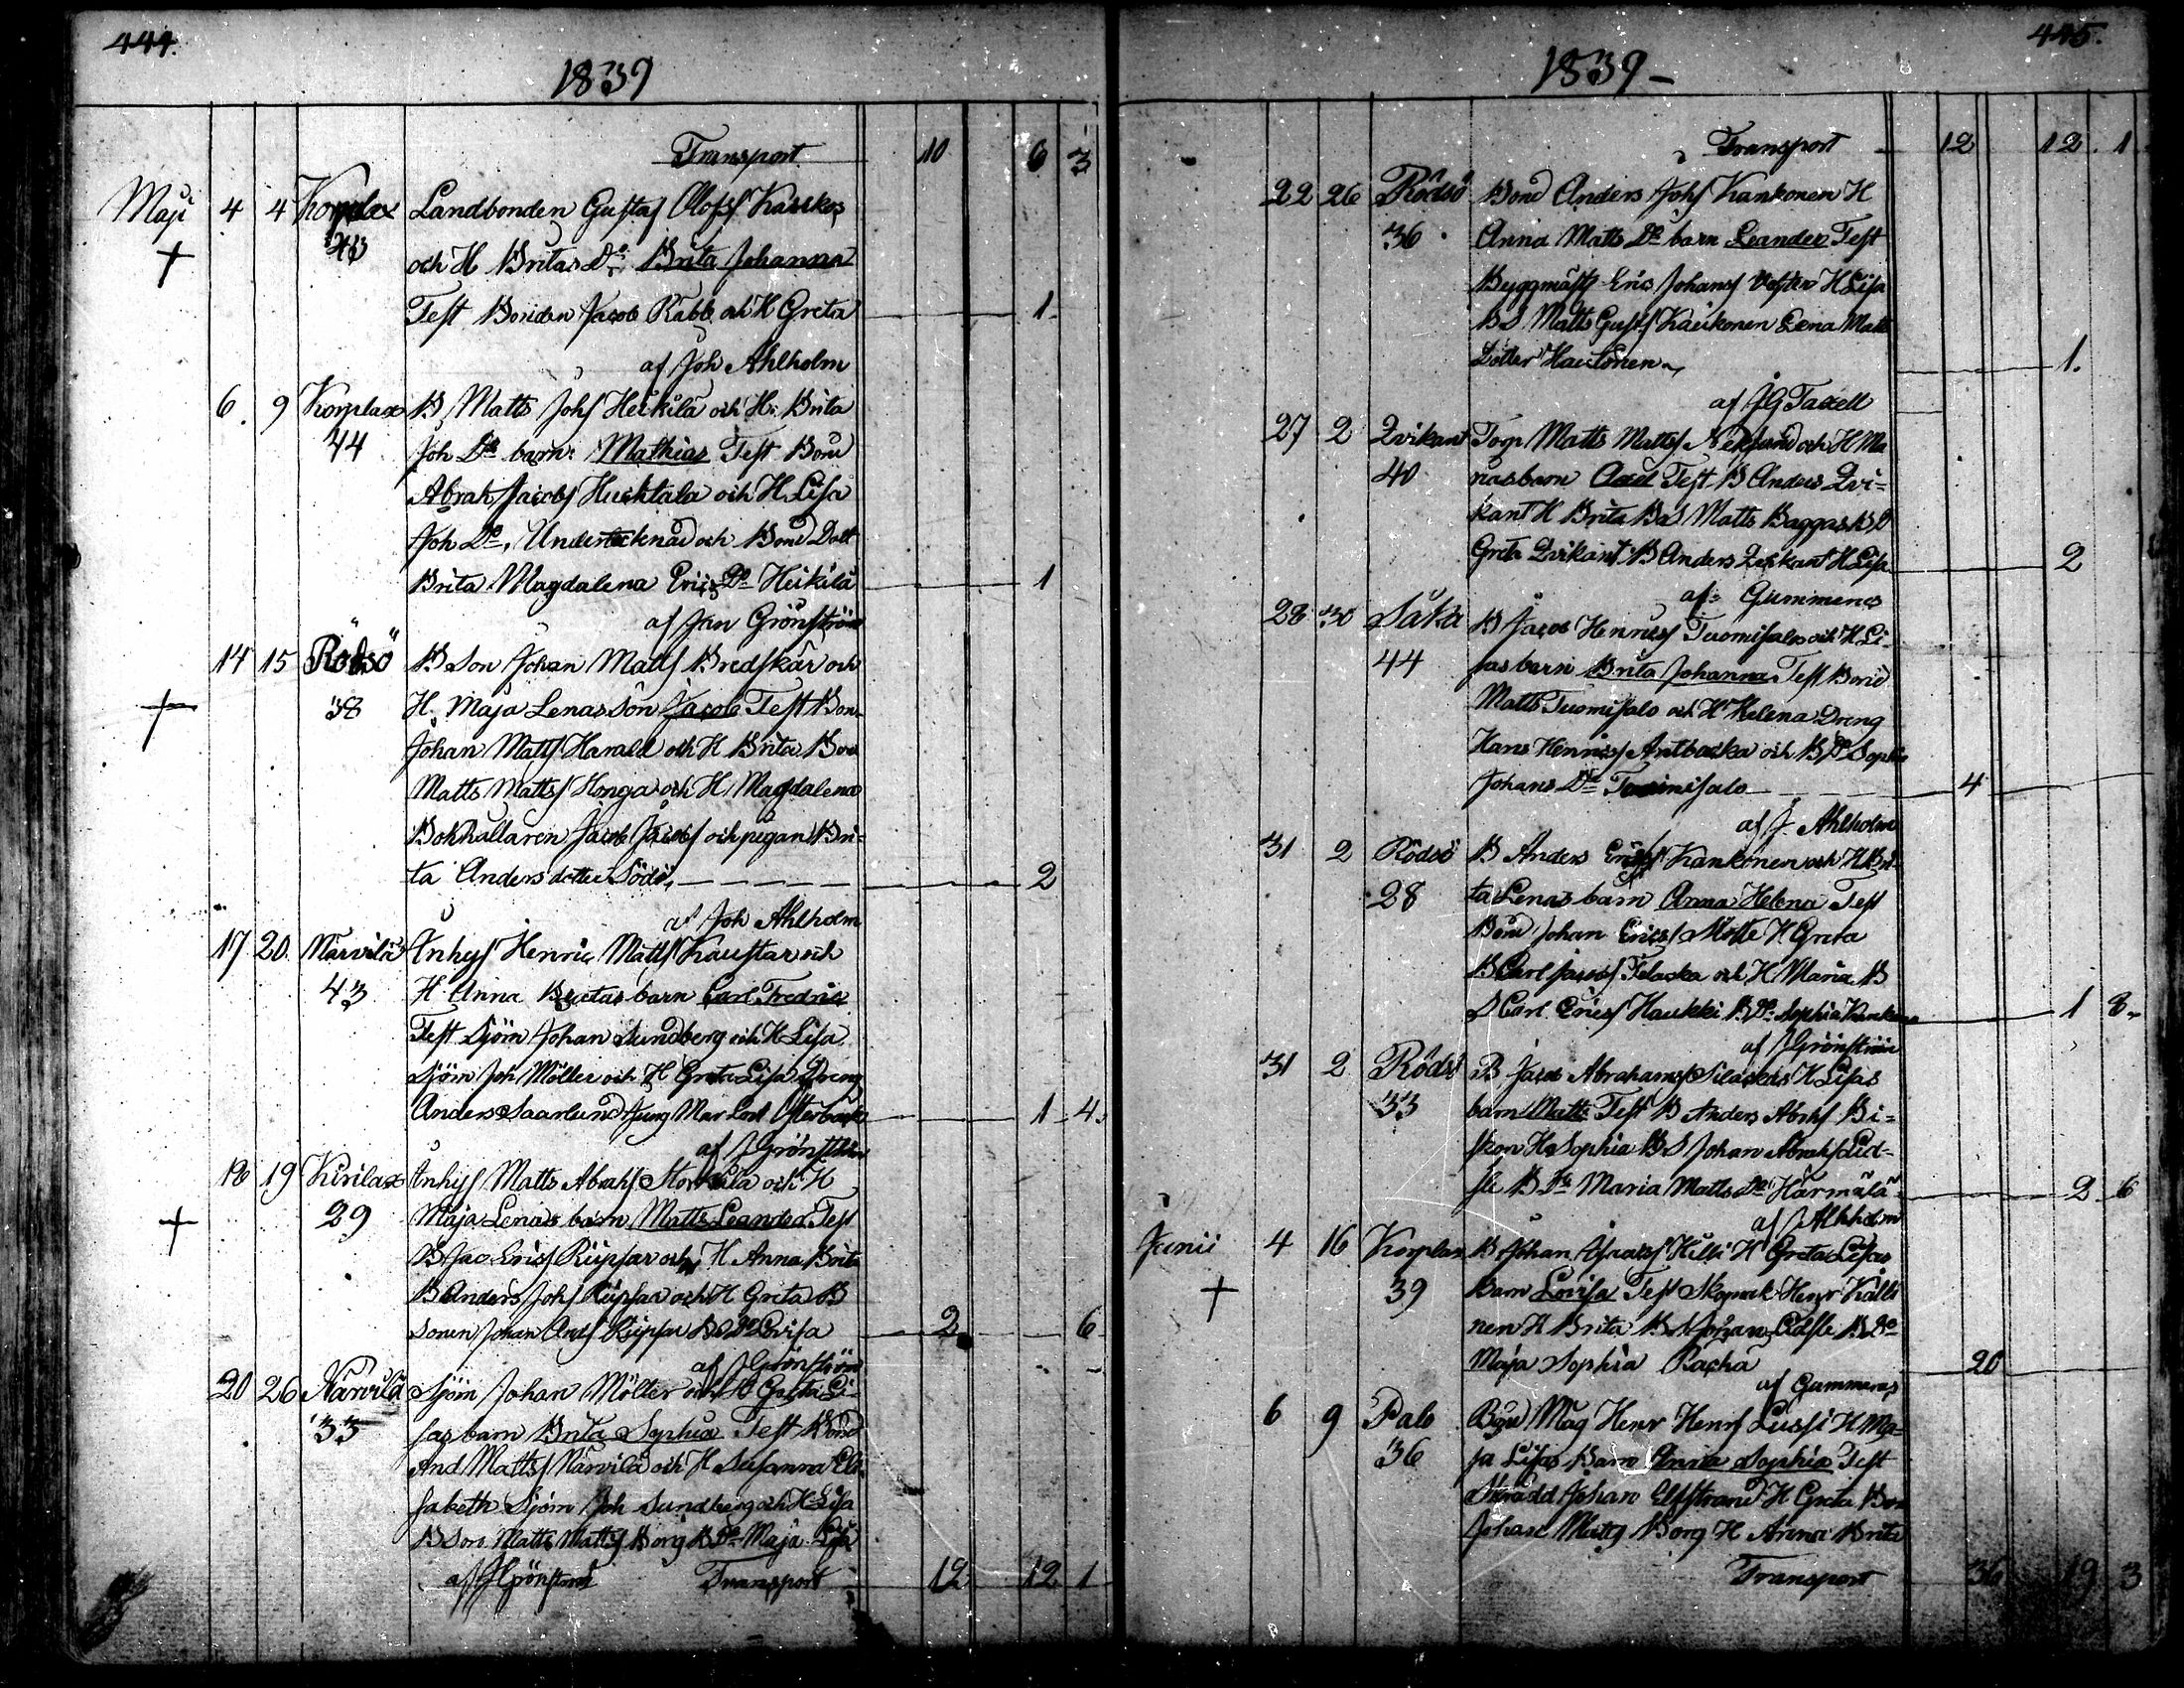 444.
1839
Transport 10 6 3
Maji 4 4 Korplax Landbonden Gustaf Olofs Karskes
43 och H Britas Dr. Brita Johanna
Test Bonden Jacob Rabb och H Greta 1
af Joh Ahlholm
6 9 Korplax B Matts Johs Heikilä och H. Brita
44 Joh Dr barn: Mathias Test Bond
Abrah Jacobs Huchtala och H Lisa
Joh Dr, Undertecknad och Bond Dott
Brita Magdalena Erics Dr Heikilä 1
af Jan Grönström
14 15 Rödsö B Son Johan Matts Bredskär och
38 H. Maja Lenas Son Jacob Test Bon
Johan Matts Harald och H Brita Bon
Matts Matts Honga och H Magdalena
Bokhållaren Jacob Jacobs och pigan Bri-
ta Andersdotter Södö, 2
af Joh Ahlholm
17 20 Närvilä Inhys Henric Matts Kaustar och
43 H. Anna Britas barn Carl Fredric
Test Sjöm Johan Sundberg och H Lisa
Sjöm Joh Möller och H Greta Lisa Dreng
Anders Saarlund Jung Mar Österbacka 1 4
af J Grönström
18 19 Kirilax Inhys Matts Abrahs Storkila och H
29 Maja Lenas barn Matts Leander Test
B Jac Erics Ripsar och H Anna Brita
B Anders Johs Ripsar och H Greta B
Sonen Johan Ands Ripsar B Dr Lovisa 2 6
af J Grönström
20 26 Närvilä Sjöm Johan Mölter och H Greta Li-
33 sas barn Brita Sophia Test Bond
And Matts Närvilä och H Susanna Eli-
sabeth Sjöm Joh Sundberg och H Lisa
B Son Matts Matts Borg B Dr Maja Lisa
af J Grönström Transport 12 12 1
445.
1839
Transport 12 12 1
22 26 Rödsö Bond Anders Johs Kankonen H
36 Anna Matts Dr barn Leander Test
Byggmäst Eric Johans H Lisa
B S Matts Gusts Kaukonen Lena Matts
Dotter Hautonen 1.
af J G Taxell
27 2 Zvikant Torp Matts Matts och H Ma
40 rias barn Axel Test B Anders Zvi-
kant H Brita B S Matts Baggas B D
Greta Zvikant B Anders Zvikant H Lisa 2
af Gummerus
28 30 Såka B Jacob Henrics Tuomisalo och H Li-
44 sas barn Brita Johanna Test Bond
Matts Tuomisalo och H Helena Dreng
Hans Henrics Antbacka och B Dr Sophia
Johans Dr Tuomisalo 4
af J Ahlholm
31 2 Rödsö B Anders Erics Kankonen och H Bri-
28 ta Lenas barn Anna Helena Test
Bond Johan Erics Mötte H Greta
B Carl Jacobs Filaska och H Maria B
S Carl Erics Haukki B Dr Sophia 1 8
af J Grönström
31 2 Rödsö B Jacob Abrahams Silaskas H Lisas
33 barn Matts Test B Anders Abrahs Bi-
skon H Sophia B S Johan Abrahs Lid-
sle B Dr Maria Matts Dr Härmälä 2 6
af J Ahlholm
Junii 4 16 Korplax B Johan H Greta Lisas
39 Barn Lovisa Test Henr Källi
nen H Brita B S Johan B Dr
Maja Sophia Racha 20
af Gummerus
6 9 Palo Bond Mag Henr Henrs Lussi H Ma-
36 ja Lisas Barn Anna Sophia Test
Skrädd Johan Elfstrand H Greta Bon
Johan Matts Borg H Anna Brita
Transport 36 19 3